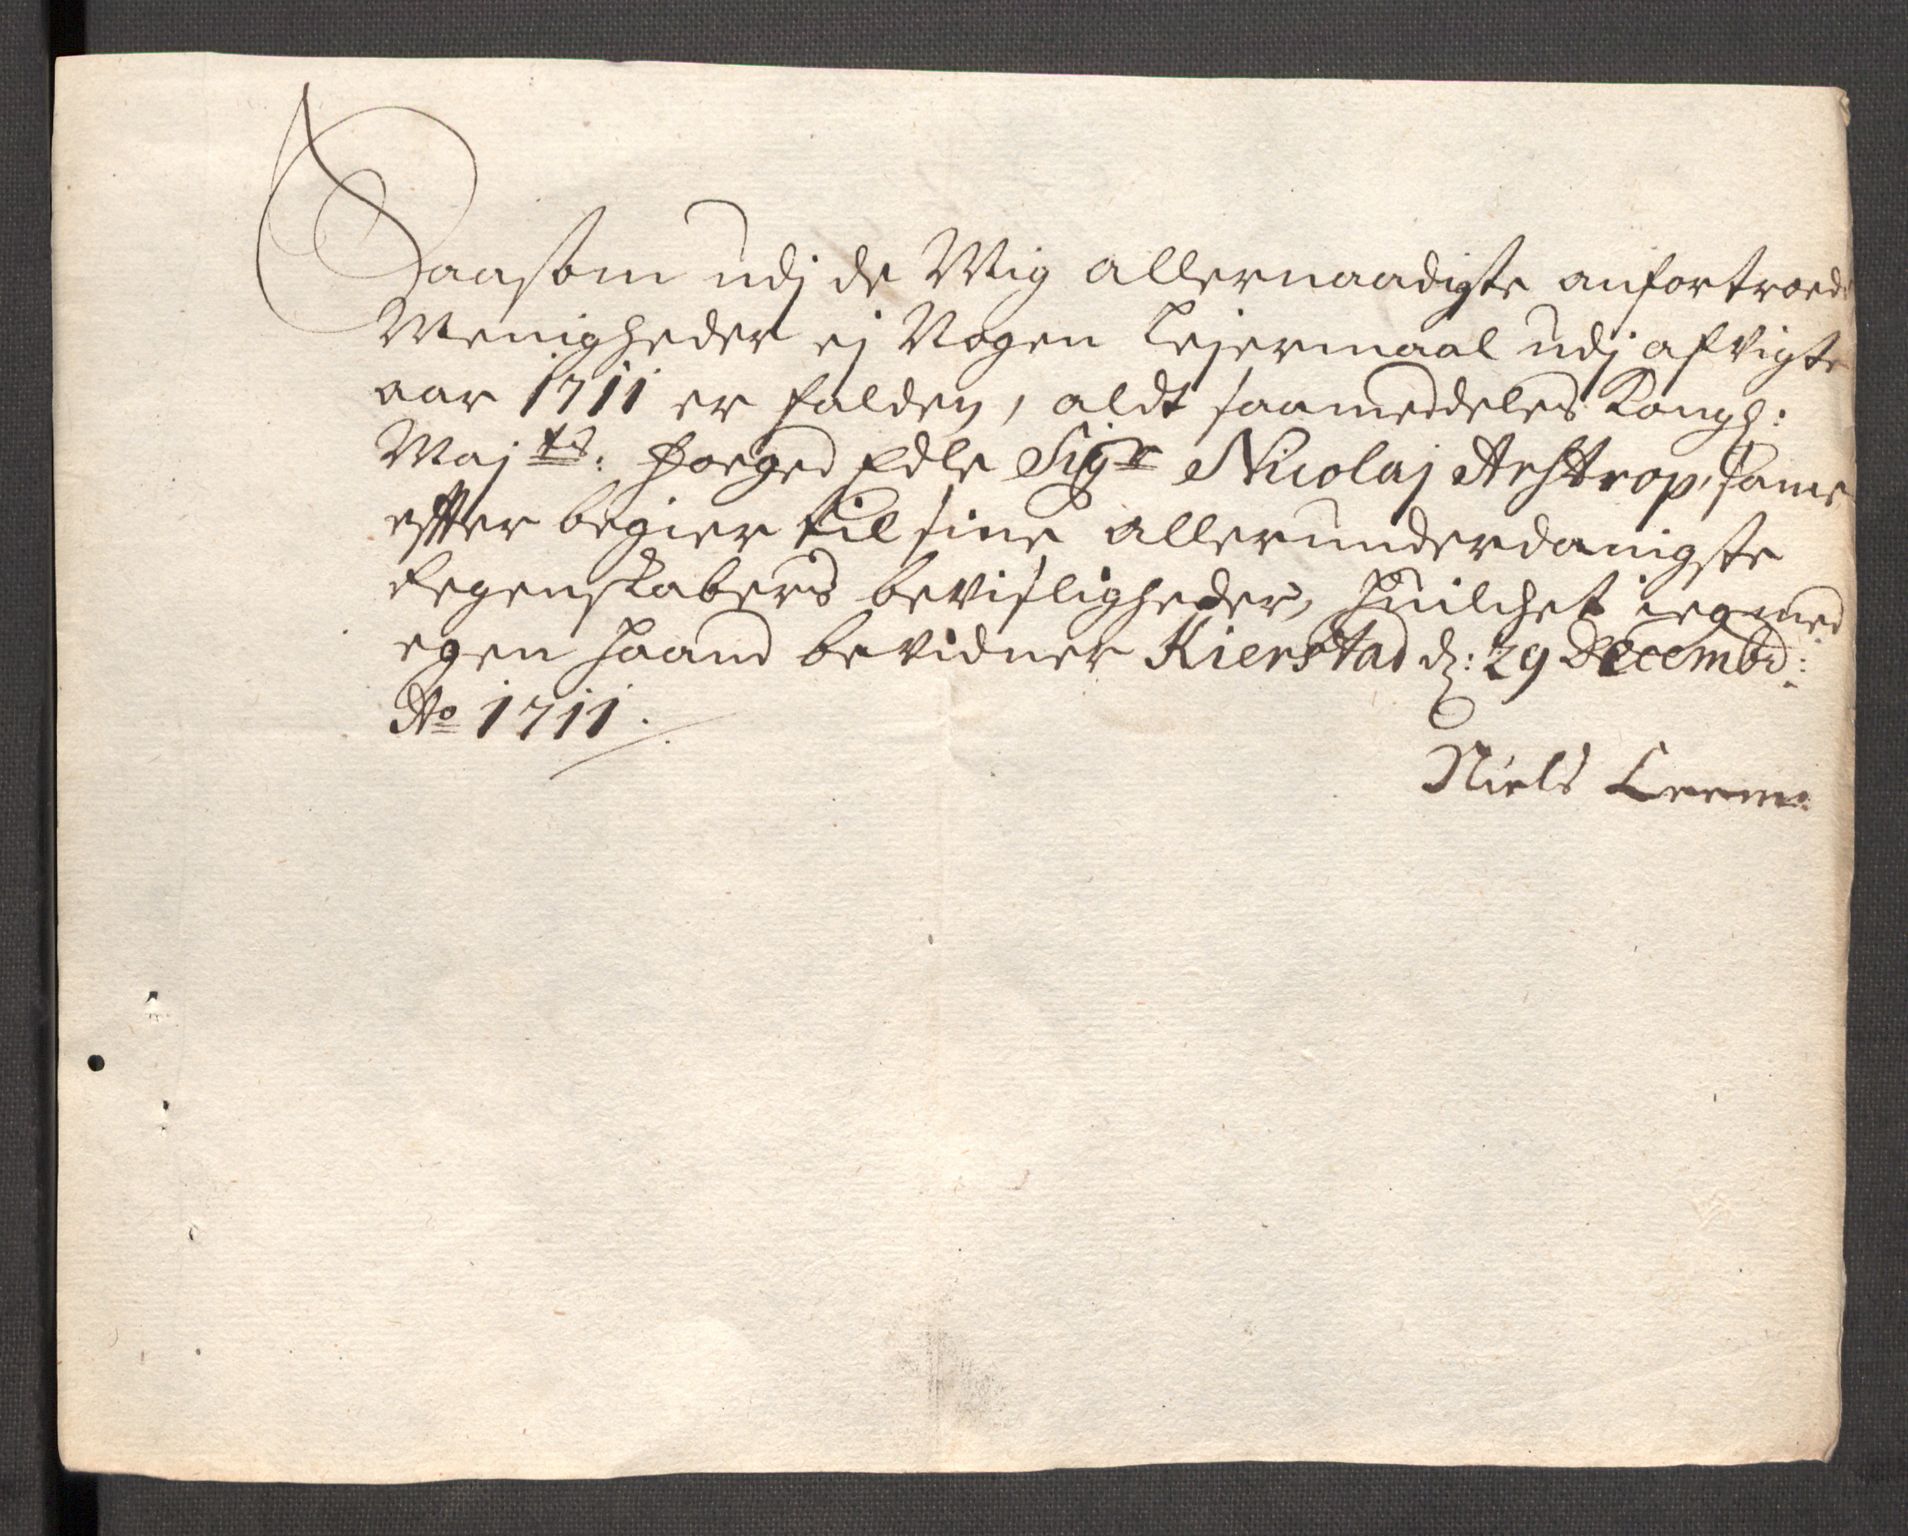 Saasom udj de Mig allernaadigste anfortroede
Menigheder ej Nogen Lejermaal udj afvigte
aar 1711 er falden, aldt saa meddeles Kongl:
Maj ts: Foeged Edle Sigr Nicolaj Aestrop, same
effter begier til sine allerunderdanigste
Regenskabers bevisligheder, Huilchet ieg med
egen Haand bevidner Kierstad d: 29 Decembr:
Ao 1711.
Niels Leem: